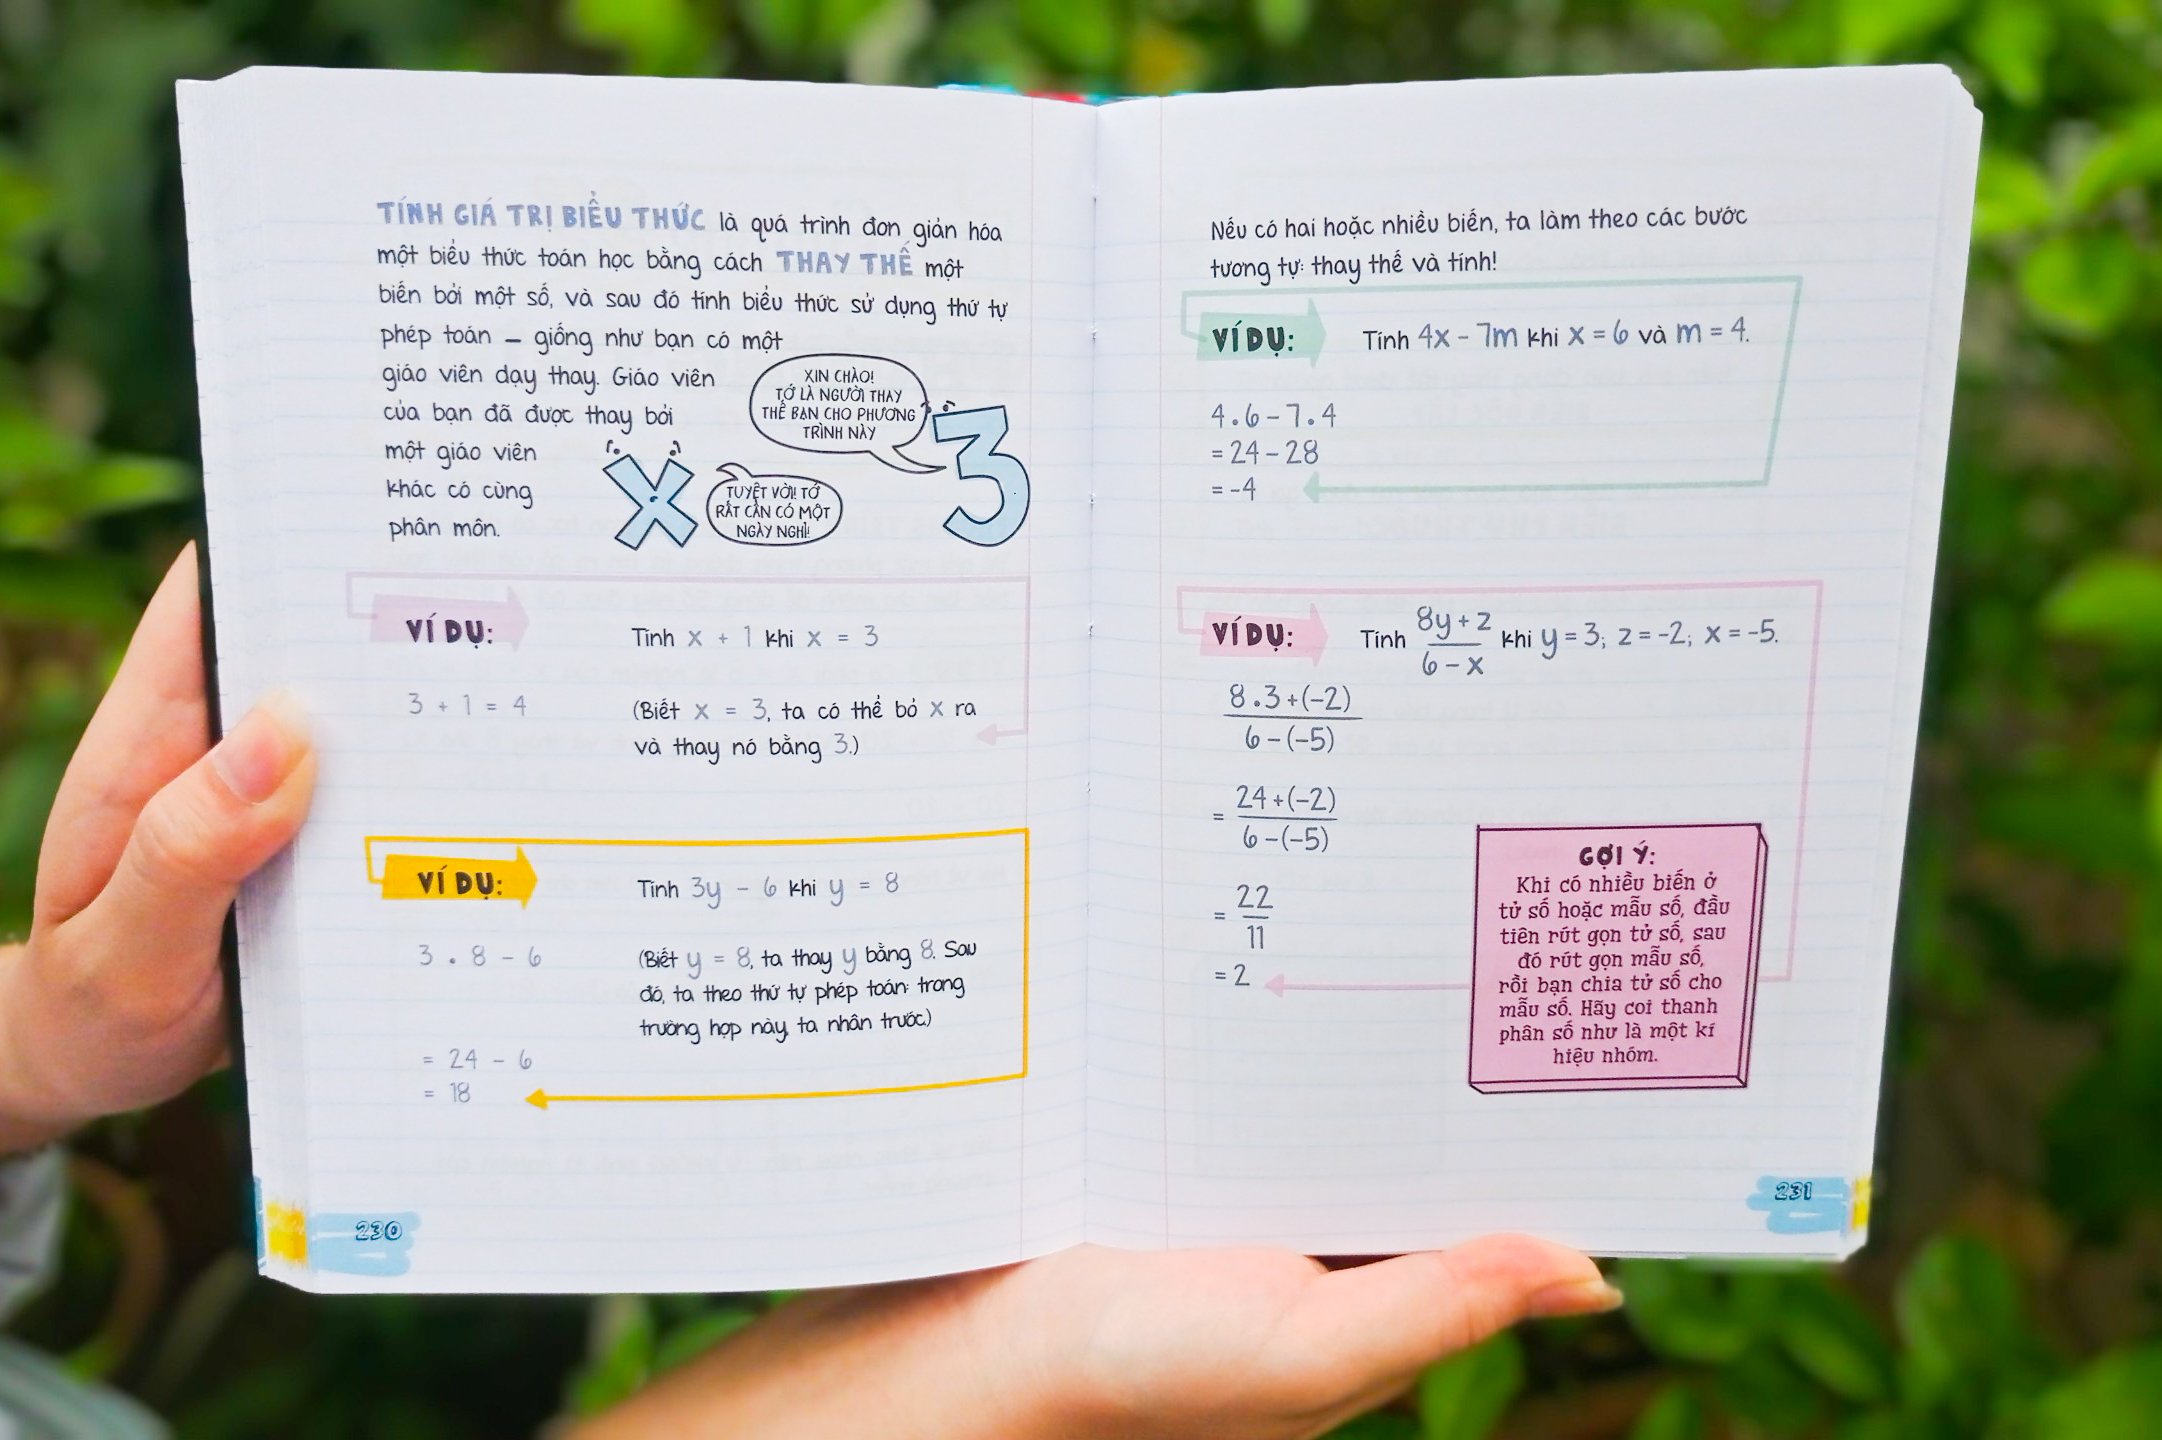 TÍNH GIÁ TRỊ BIỂU THỨC là quá trình đơn giản hóa
một biểu thức toán học bằng cách THAY THẾ một
biến bởi một số, và sau đó tính biểu thức sử dụng thứ tự
phép toán – giống như bạn có một
giáo viên dạy thay. Giáo viên
của bạn đã được thay bởi
một giáo viên
khác có cùng
phân môn.
XIN CHÀO!
TỚ LÀ NGƯỜI THAY
THẾ BẠN CHO PHƯƠNG
TRÌNH NÀY
3
X
TUYỆT VỜI! TỚ
RẤT CẦN CÓ MỘT
NGÀY NGHỈ!
VÍ DỤ: Tính x + 1 khi x = 3
3 + 1 = 4
(Biết x = 3, ta có thể bỏ x ra
và thay nó bằng 3.)
VÍ DỤ: Tính 3y – 6 khi y = 8
3 . 8 – 6
(Biết y = 8, ta thay y bằng 8. Sau
đó, ta theo thứ tự phép toán: trong
trường hợp này, ta nhân trước.)
= 24 – 6
= 18
230
Nếu có hai hoặc nhiều biến, ta làm theo các bước
tương tự: thay thế và tính!
VÍ DỤ: Tính 4x – 7m khi x = 6 và m = 4.
4 . 6 – 7 . 4
= 24 – 28
= -4
VÍ DỤ: Tính 8y + z / 6 – x khi y = 3; z = -2; x = -5.
8 . 3 + (-2)
6 – (-5)
= 24 + (-2)
6 – (-5)
= 22
11
= 2
GỢI Ý:
Khi có nhiều biến ở
tử số hoặc mẫu số, đầu
tiên rút gọn tử số, sau
đó rút gọn mẫu số,
rồi bạn chia tử số cho
mẫu số. Hãy coi thanh
phân số như là một kí
hiệu nhóm.
231